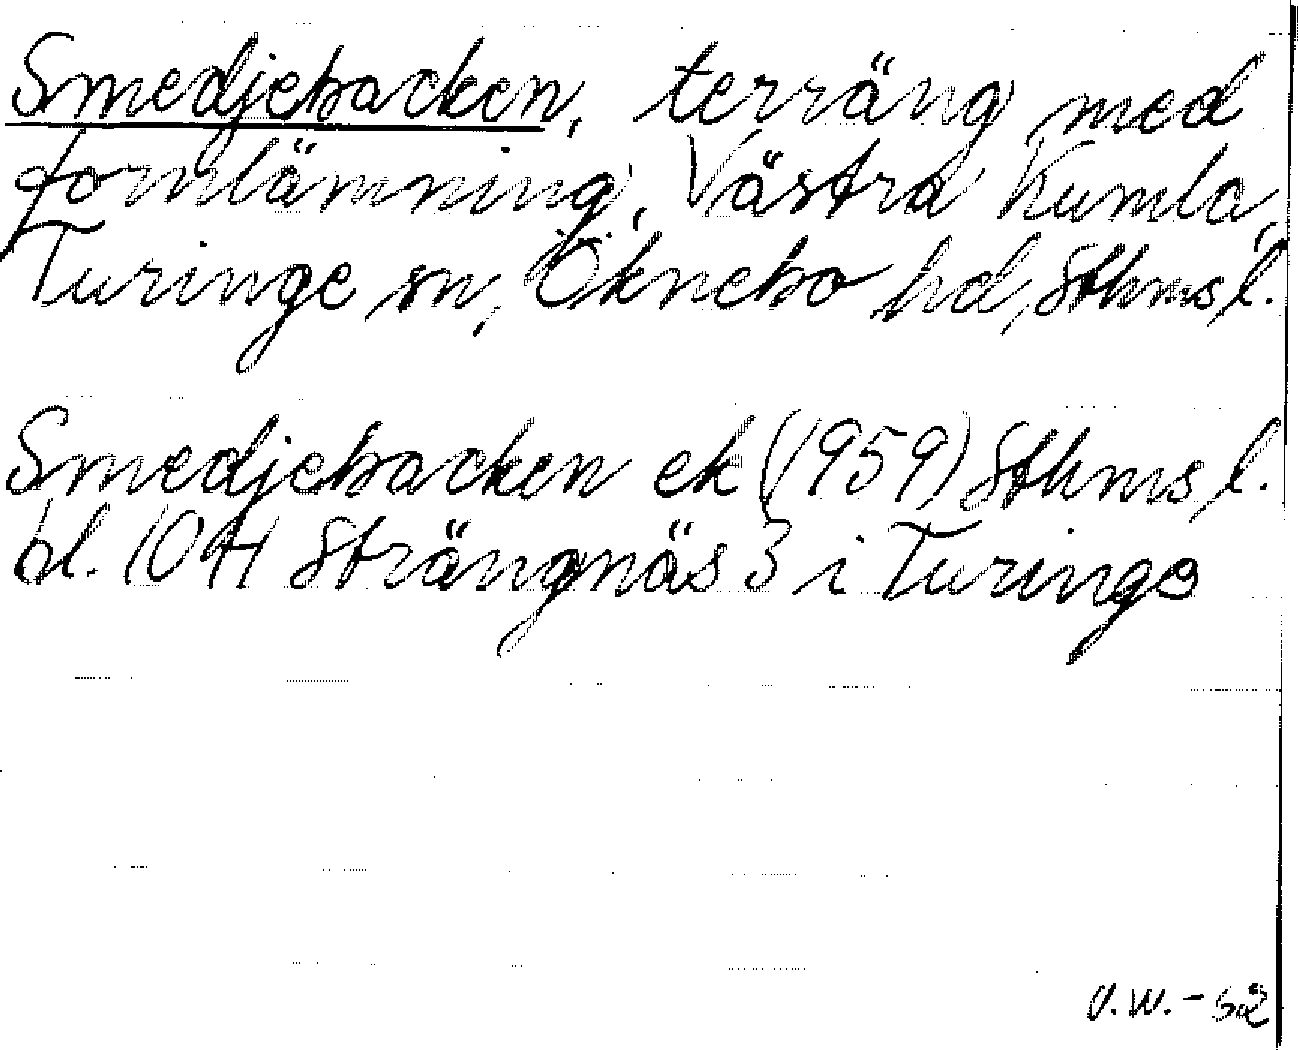 Smedjebacken, terräng med
fornlämning, Västra Kumla,
Turinge sn, Öknebo hd, Sthms l.
Smedjebacken ek (1959) Sthms l.
bl. 104 Strängnäs 3 i Turinge
V.W. -